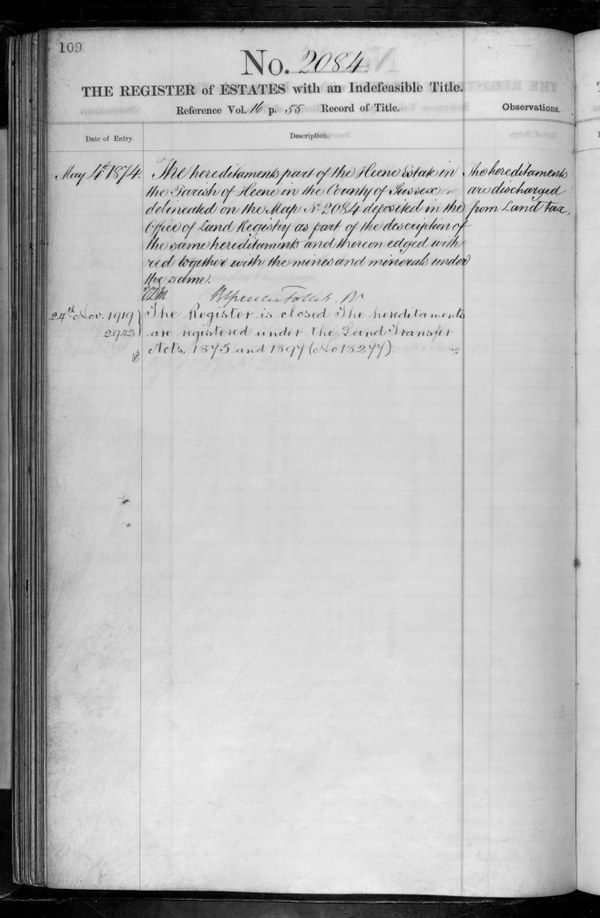 109
No. 2084
THE REGISTER of ESTATES with an Indefeasible Title.
Reference Vol. 16 p. 55 Record of Title.
Observations.
Date of Entry.
Description.
May 4th 1874
The hereditaments part of the Heene Estate in
the Parish of Heene in the County of Sussex
delineated on the Map No 2084 deposited in the
Office of Land Registry as part of the description of
the same hereditaments and thereon edged with
red together with the mines and minerals under
the same.
The hereditaments
are discharged
from Land tax.
24th Nov. 1919
2942
The Register is closed The hereditaments
are registered under the Land Transfer
Acts, 1875 and 1897 (No 18277).